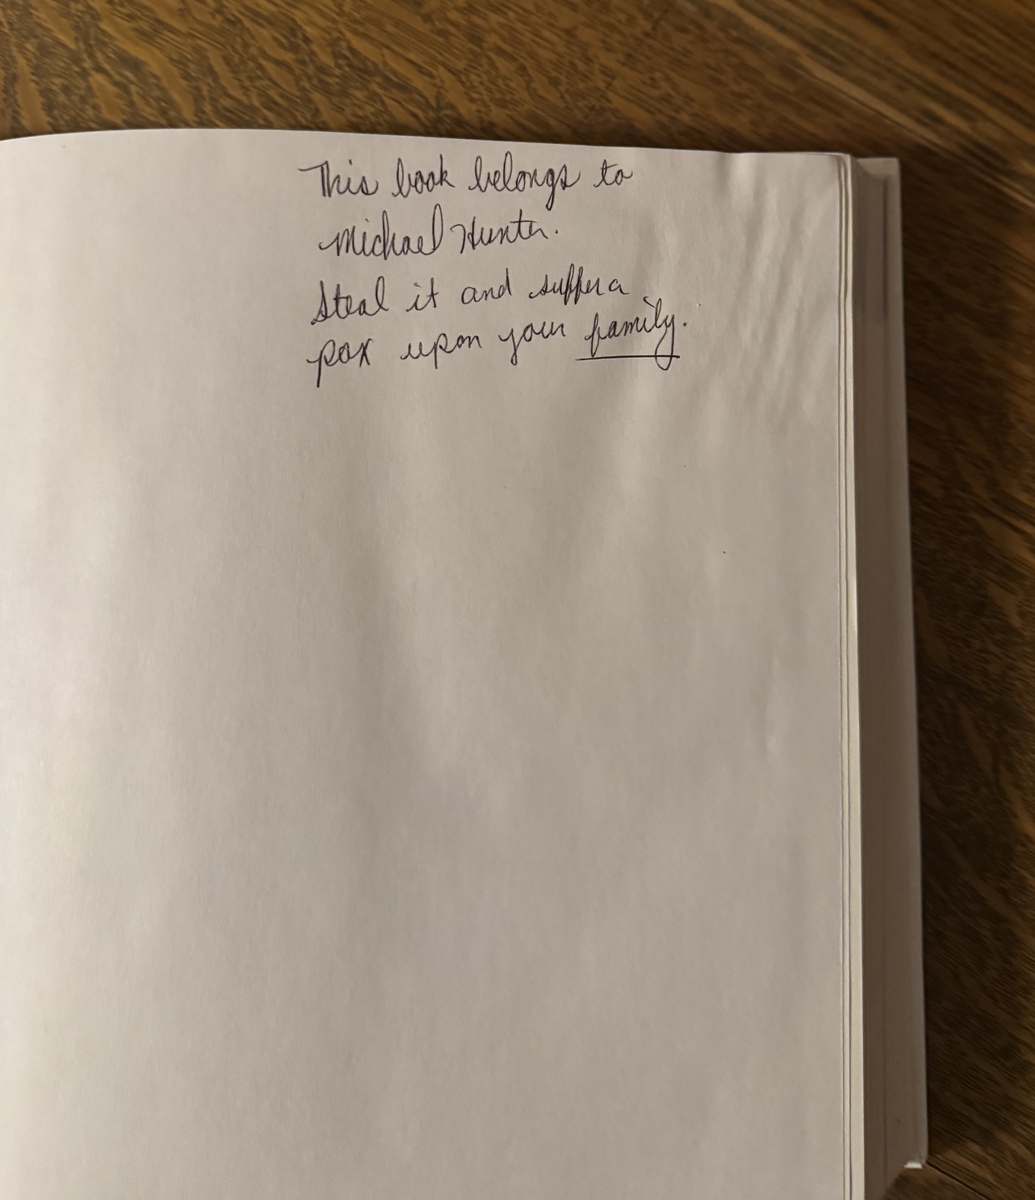 This book belongs to
Michael Hunter.
Steal it and suffer a
pox upon your family.